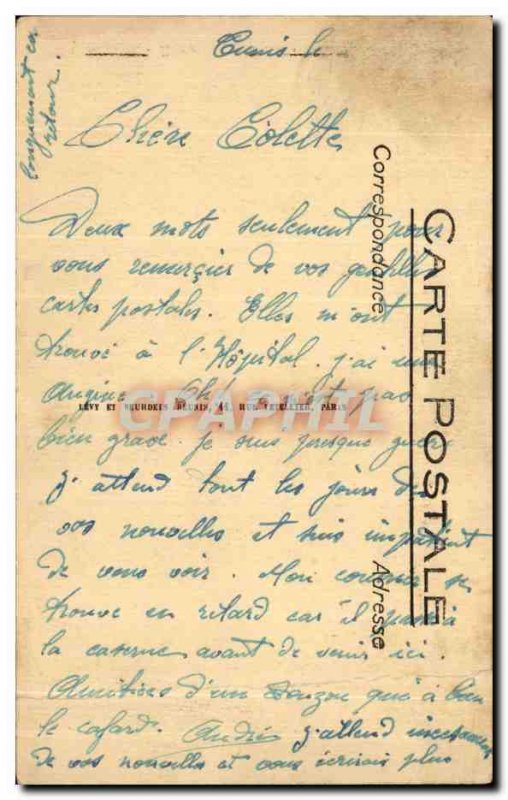 Tunis le
Chère Colette
Deux mots seulement pour
vous remerçier de vos gentilles
cartes postales. Elles m'ont
trouvé à l'Hôpital. j'ai une
Angine Oh! ce n'est pas
bien grave. je suis presque guéri
j'attend tout les jours de
vos nouvelles et suis impatient
de vous voir. Mon courrier se
trouve en retard car il passe à
la caserne avant de venir ici.
Amitiées d'un qui à bien
le cafard. André j'attend incessamment
de vos nouvelles et vous écrirais plus
longuement en
retour.
CARTE POSTALE
Correspondance
Adresse
LÉVY ET NEURDEIN RÉUNIS, 44, RUE LETELLIER, PARIS
CPAPHIL